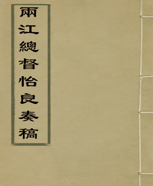 兩江總督怡良奏稿